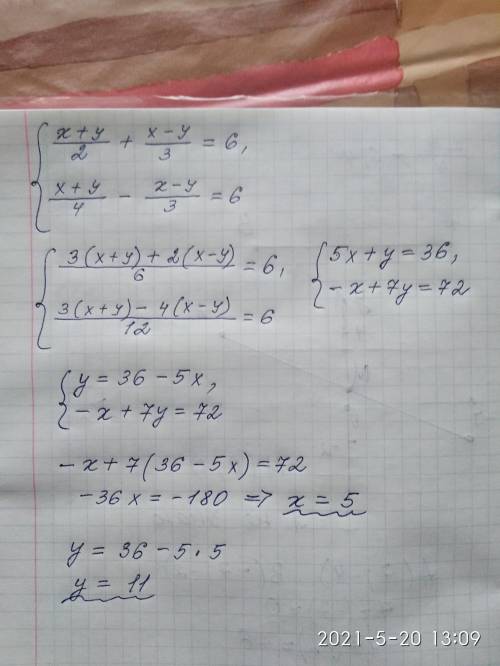 { (x+y)/2 + (x-y)/3 = 6,
(x+y)/4 - (x-y)/3 = 6
{ (3(x+y)+2(x-y))/6 = 6, { 5x+y=36,
(3(x+y)-4(x-y))/12 = 6 -x+7y=72
{ y=36-5x,
-x+7y=72
-x+7(36-5x)=72
-36x=-180 => x=5
y=36-5·5
y=11
2021-5-20 13:09